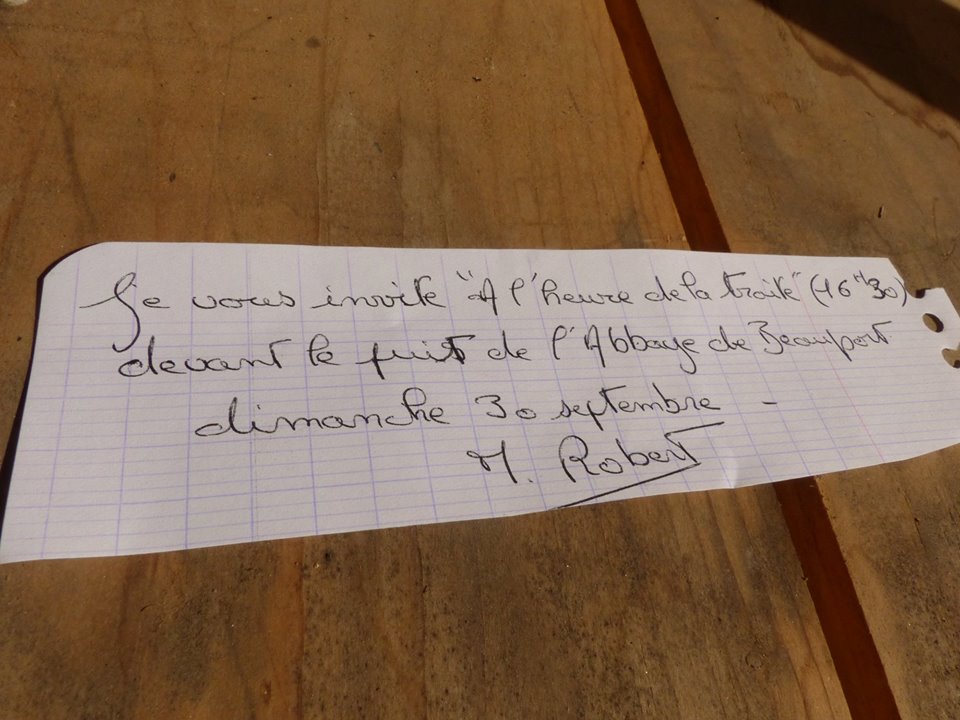 Je vous invite "A l'heure de la traite" (16h30)
devant le puits de l'Abbaye de Beauport
dimanche 30 septembre -
M. Robert